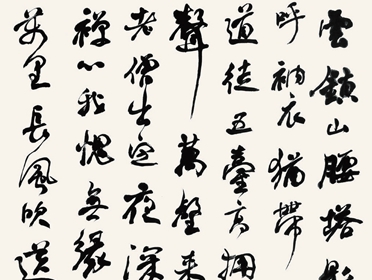 雲鎖山腰塔影
呼衲衣猶帶
道徒五臺高
聲萬壑來
老僧出定夜深
禪心我愧無緣
萬里長風吹送